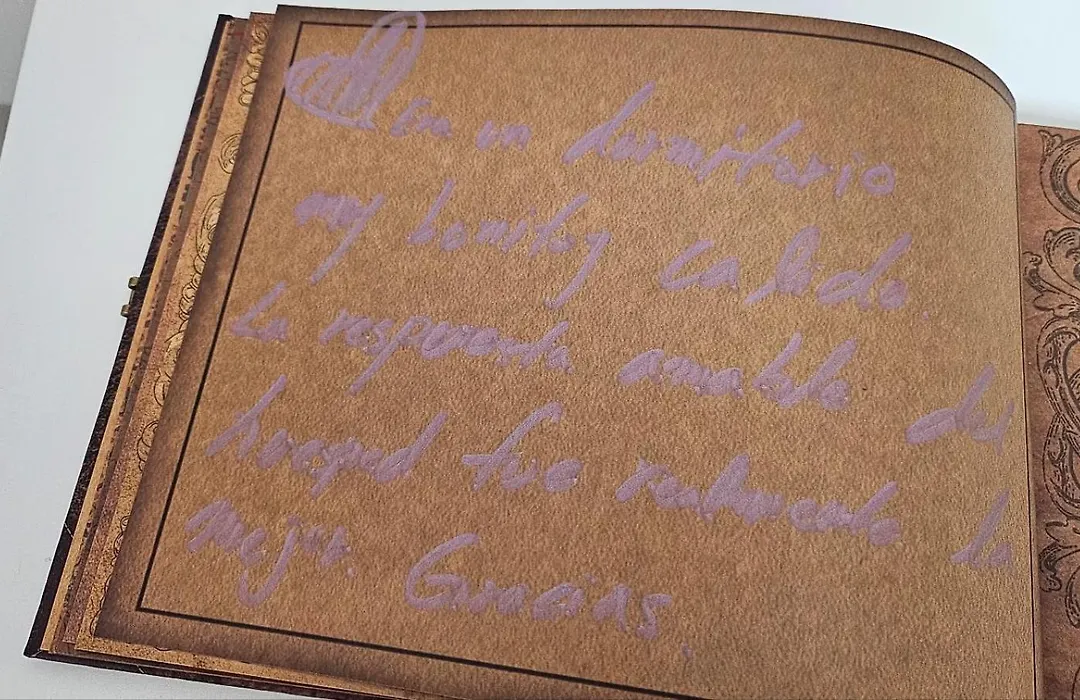 En un dormitorio
muy bonito y calido.
La respuesta amable del
huesped fue realmente lo
mejor. Gracias